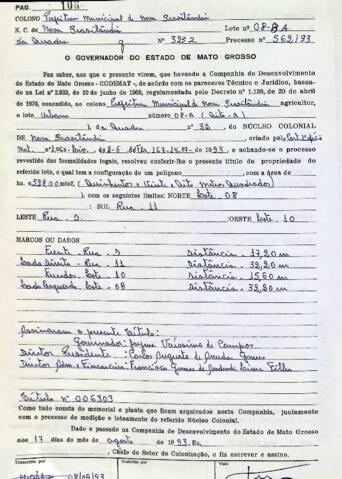 PAG. 106
COLONO Prefeitura Municipal de Nova Brasilândia
N. C. de Nova Brasilândia Lote nº 08-A
da Quadra nº 32 Processo nº 562/93
O GOVERNADOR DO ESTADO DE MATO GROSSO
Faz saber, aos que o presente virem, que havendo a Companhia de Desenvolvimento
do Estado de Mato Grosso - CODEMAT -, de acordo com os pareceres Técnico e Jurídico, basea-
do na Lei nº 2.933, de 10 de junho de 1969, regulamentada pelo Decreto nº 1.138, de 30 de abril
de 1970, concedido, ao colono Prefeitura Municipal de Nova Brasilândia agricultor,
o lote Urbano número 08-A (Oito-A)
da Quadra nº 32 DO NÚCLEO COLONIAL
DE Nova Brasilândia, criado pela
Mat. de 1993, e achando-se o processo
revestido das formalidades legais, resolveu conferir-lhe o presente título de propriedade do
referido lote, o qual tem a configuração de um polígono, com a área de
ha. 528,00 mts2, (Quinhentos e Vinte e Oito Metros Quadrados)
), com os seguintes limites: NORTE Lote 08
: SUL Rua - 11
LESTE Rua - D :OESTE Lote - 10
MARCOS OU DADOS
Frente - Rua - D Distância - 17,20 m
Lado Direito - Rua - 11 Distância - 32,20 m
Fundos - Lote - 10 Distância - 15,60 m
Lado Esquerdo - Lote - 08 Distância - 32,20 m
Assinaram o presente título:
Governador: Jayme Veríssimo de Campos
Diretor Presidente: Carlos Augusto de Arruda Gomes
Diretor Adm e Financeiro: Francisco Gomes de Andrade Lima Filho
Título nº 006303
Como tudo consta do memorial e planta que ficam arquivados nesta Companhia, juntamente
com o processo de medição e loteamento do referido Núcleo Colonial.
Dado e passado na Companhia de Desenvolvimento do Estado de Mato Grosso
aos 17 dias do mês de agosto de 1993. Eu,
, Chefe do Setor de Colonização, o fiz escrever e assino.
Transcrito por Conferido por Visto
08/09/93